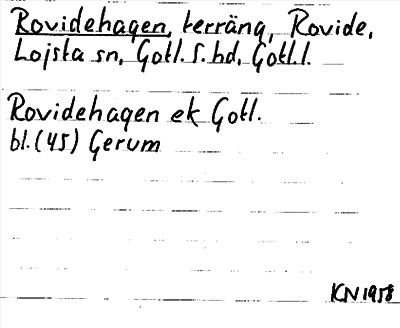 Rovidehagen, terräng, Rovide,
Lojsta sn, Gotl. S. hd, Gotl. l.
Rovidehagen ek Gotl.
bl. (45) Gerum
KN 1958